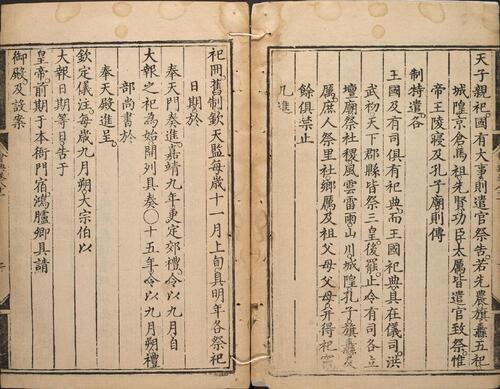 天子親祀國有大事則遣官祭告若先農旗纛五祀
城隍京倉馬祖先賢功臣太厲皆遣官致祭惟
帝王陵寢及孔子廟則傳
制特遣各
王國及有司俱有祀典而王國祀典具在儀司洪
武初天下郡縣皆祭三皇後罷止令有司各立
壇廟祭社稷風雲雷雨山川城隍孔子旗纛及
厲庶人祭里社鄉厲及祖父母父母并得祀竈
餘俱禁止
凡進
祀冊舊制欽天監每歲十一月上旬具明年各祭祀
日期於
奉天門奏進嘉靖九年更定郊禮令以九月自
大報之祀為始開列具奏〇十五年令以九月朔禮
部尚書於
奉天殿進呈
欽定儀注每歲九月朔大宗伯以
大報日期等日告于
皇帝前期于本衙門宿鴻臚卿具請
御殿及設案